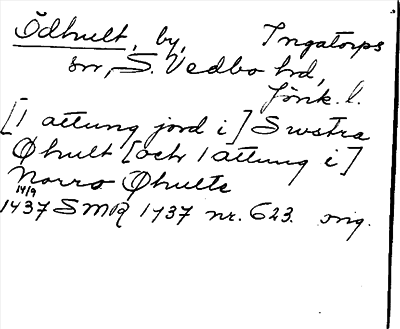 Ödhult, by, Ingatorps
sn, S. Vedbo hd,
Jönk. l.
[1 attung jord i] Swstra
Øhult [och 1 attung i]
Norra Øhulte
14/9
1437 SMR 1437 nr. 623. orig.